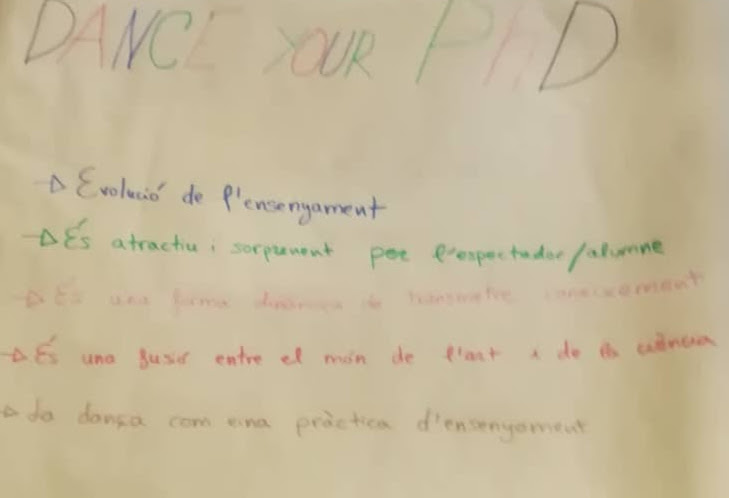 DANCE YOUR PhD
→ Evolució de l'ensenyament
→ És atractiu i sorprenent per l'espectador/alumne
→ És una forma dinàmica de transmetre coneixement
→ És una fusió entre el món de l'art i de la ciència
→ La dança com eina pràctica d'ensenyament